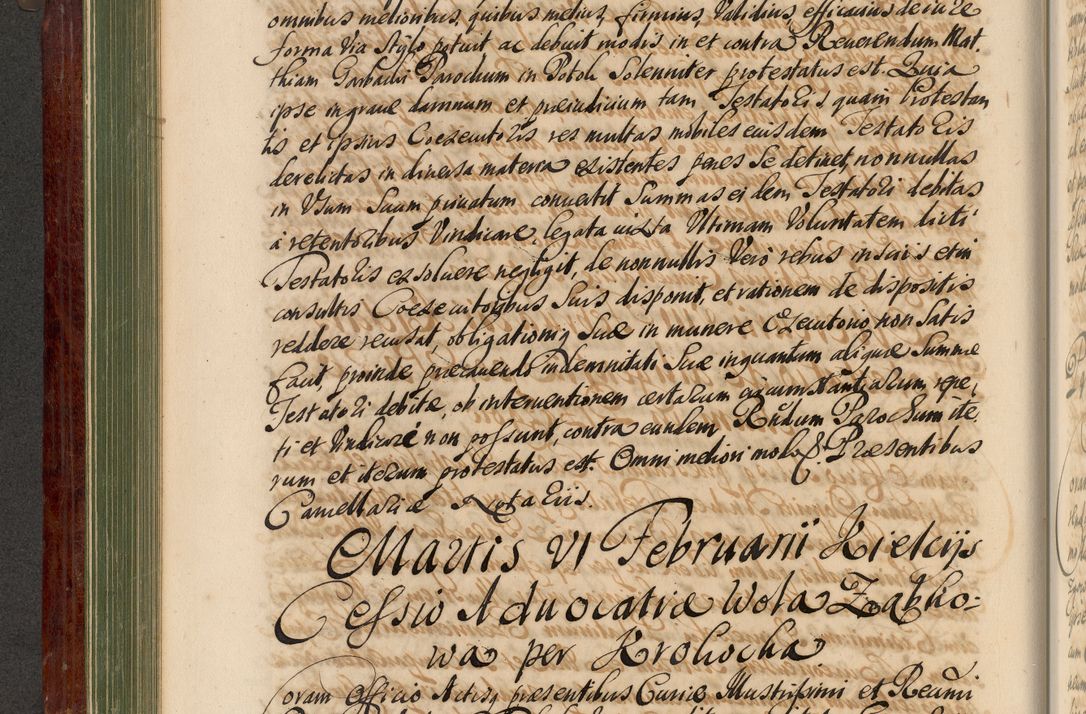 omnibus melioribus, quibus melius, firmius, Validius, efficacius de iure
forma Via Stylo potuit ac debuit modis in et contra Reuerendum Mat,
thiam Garbacki Parochum in Potok Solenniter protestatus est. Quia
ipse in graue damnum et præiudicium tam Testatoris quam Protestan
tis et ipsius Coexecutoris res multas mobiles eiusdem Testatoris
derelictas in diuersa materia existentes penes Se detinet, nonnullas
in Vsum Suum priuatum conuertit Summas eidem Testatori debitas
à retentoribus Vindicare, legata iuxta Vltimam Voluntatem dicti
Testatoris exsoluere negligit, de nonnullis Vero rebus insciis et in
consultis Coexecutoribus Suis disponit, et rationem de dispositis
reddere recusat, obligationiq Suæ in munere Executorio non Satis
facit, proinde præcauendo indemnitati Suæ inquantum aliquæ Summæ
Testatori debitæ, ob interuentionem certarum circumstantiarum, repe,
ti et Vindicare non possunt, contra eundem Rndum Parochum ite,
rum et iterum protestatus est. Omni meliori modo &. Præsentibus
Cancellariæ Notariis.
Martis VI Februarii Kielcijs
Cessio Aduocatiæ Wola Ząbko-
wa per Krokocka
Coram Officio Actisq præsentibus Curiæ Illustrissimi et Reuermi